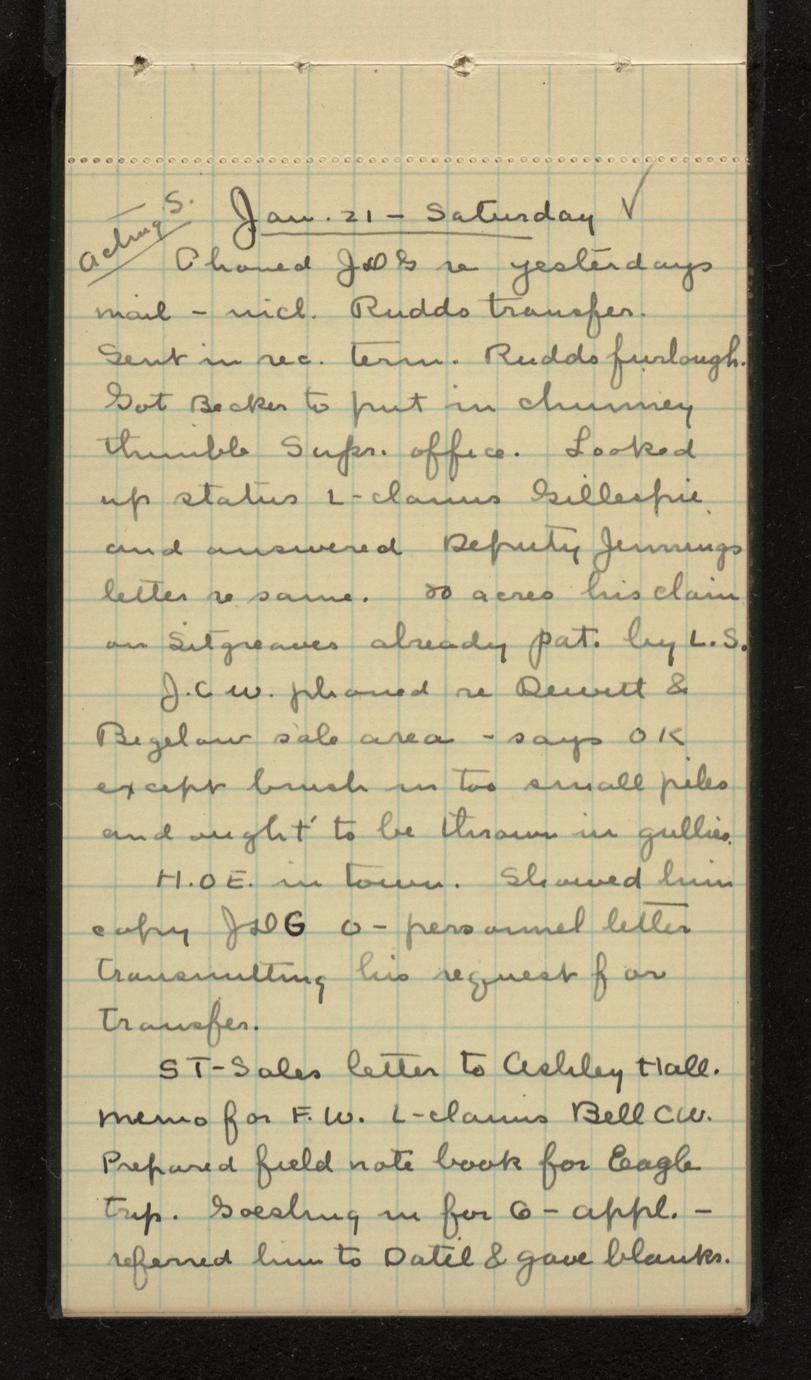 Acting S.
Jan. 21 - Saturday ✓
Phoned JDG re yesterdays
mail - incl. Rudds transfer.
Sent in rec. term. Rudds furlough.
Got Becker to put in chimney
thimble Supr. office. Looked
up status L-claims Gillespie
and answered Deputy Jennings
letter re same. 80 acres his claim
on Sitgreaves already pat. by L.S.
J.C.W. phoned re Dewitt &
Bigelow sale area - says OK
except brush in too small piles
and ought to be thrown in gullies.
H.O.E. in town. Showed him
copy JDG O - personnel letter
transmitting his request for
transfer.
ST-Sales letter to Ashley Hall.
Memo for F.W. L-claims Bell CW.
Prepared field note book for Eagle
trip. Goesling in for G - appl. -
referred him to Datil & gave blanks.